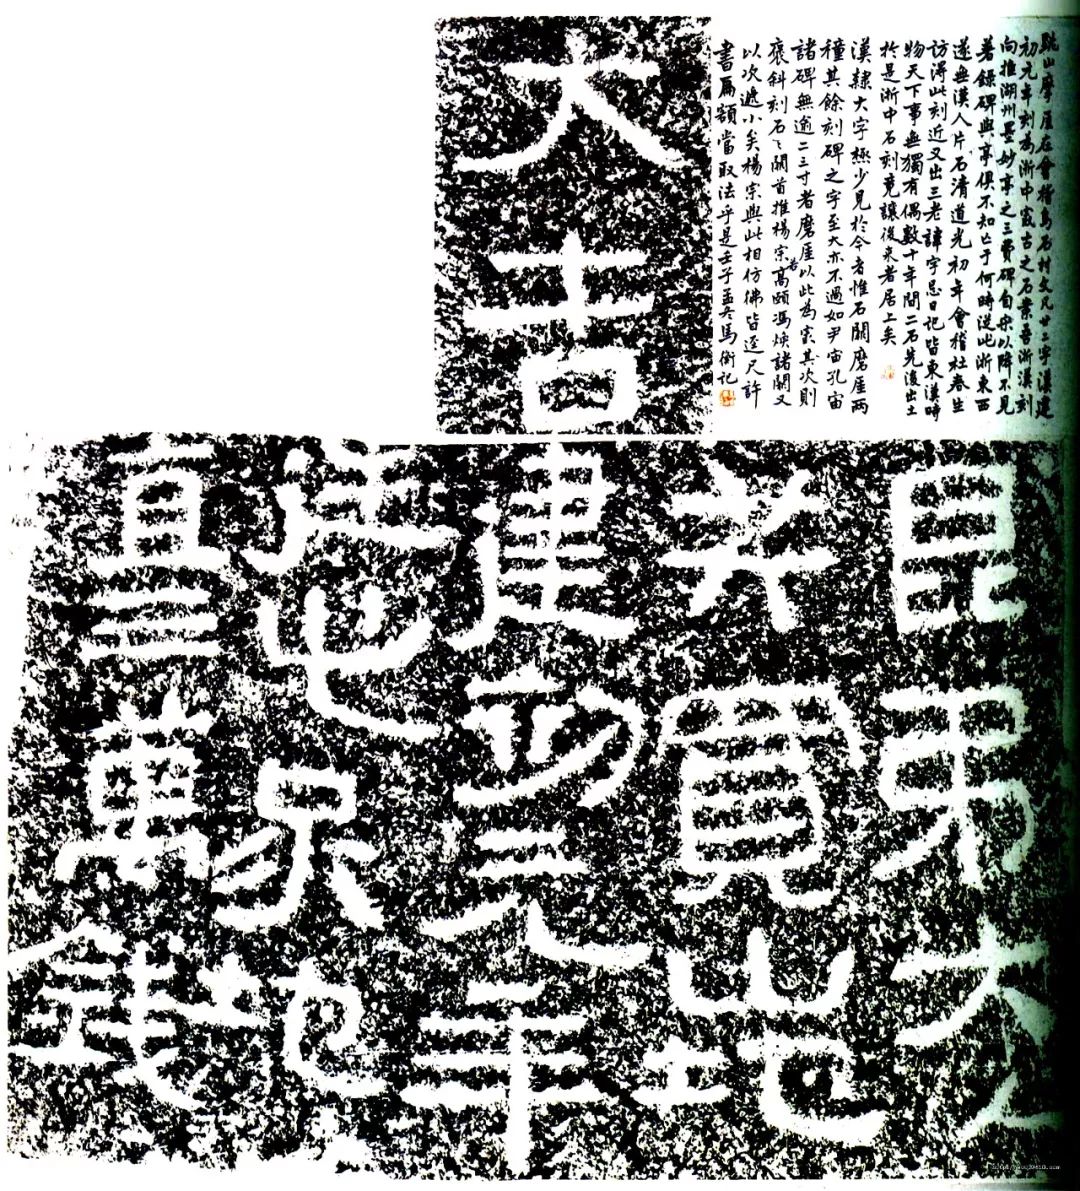 跳山摩厓在會稽烏石村文凡廿二字漢建
初元年刻為浙中最古之石案吾浙漢刻
向推湖州墨妙亭之三費碑自宋以降不見
著錄碑與亭俱不知亡于何時從此浙東西
遂無漢人片石清道光初年會稽杜春生
訪得此刻近又出三老諱字忌日記皆東漢時
物天下事無獨有偶數十年間二石先後出土
於是浙中石刻竟讓後來者居上矣
漢隸大字極少見於今者惟石闕磨厓兩
種其餘刻碑之字至大亦不過如尹宙孔宙
諸碑無逾二三寸者磨厓以此為宗其次則
褒斜刻石〻闕首推楊宗若高頤馮煥諸闕又
以次遞小矣楊宗與此相仿佛皆逕尺許
書扁額當取法乎是壬子孟冬馬衡記
大吉
昆弟六人
共買山地
建初元年
造此冢地
直三萬錢